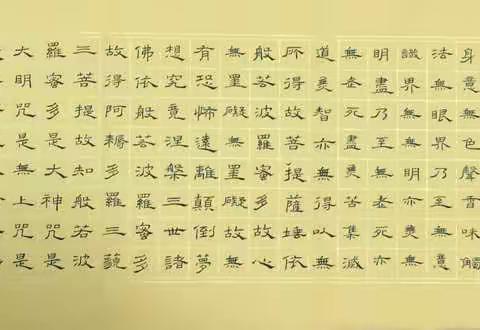 身意無色聲香味觸
法無眼界乃至無意
識界無無明亦無無
明盡乃至無老死亦
無老死盡無苦集滅
道無智亦無得以無
所得故菩提薩埵依
般若波羅蜜多故心
無罣礙無罣礙故無
有恐怖遠離顛倒夢
想究竟涅槃三世諸
佛依般若波羅蜜多
故得阿耨多羅三藐
三菩提故知般若波
羅蜜多是大神咒是
大明咒是無上咒是